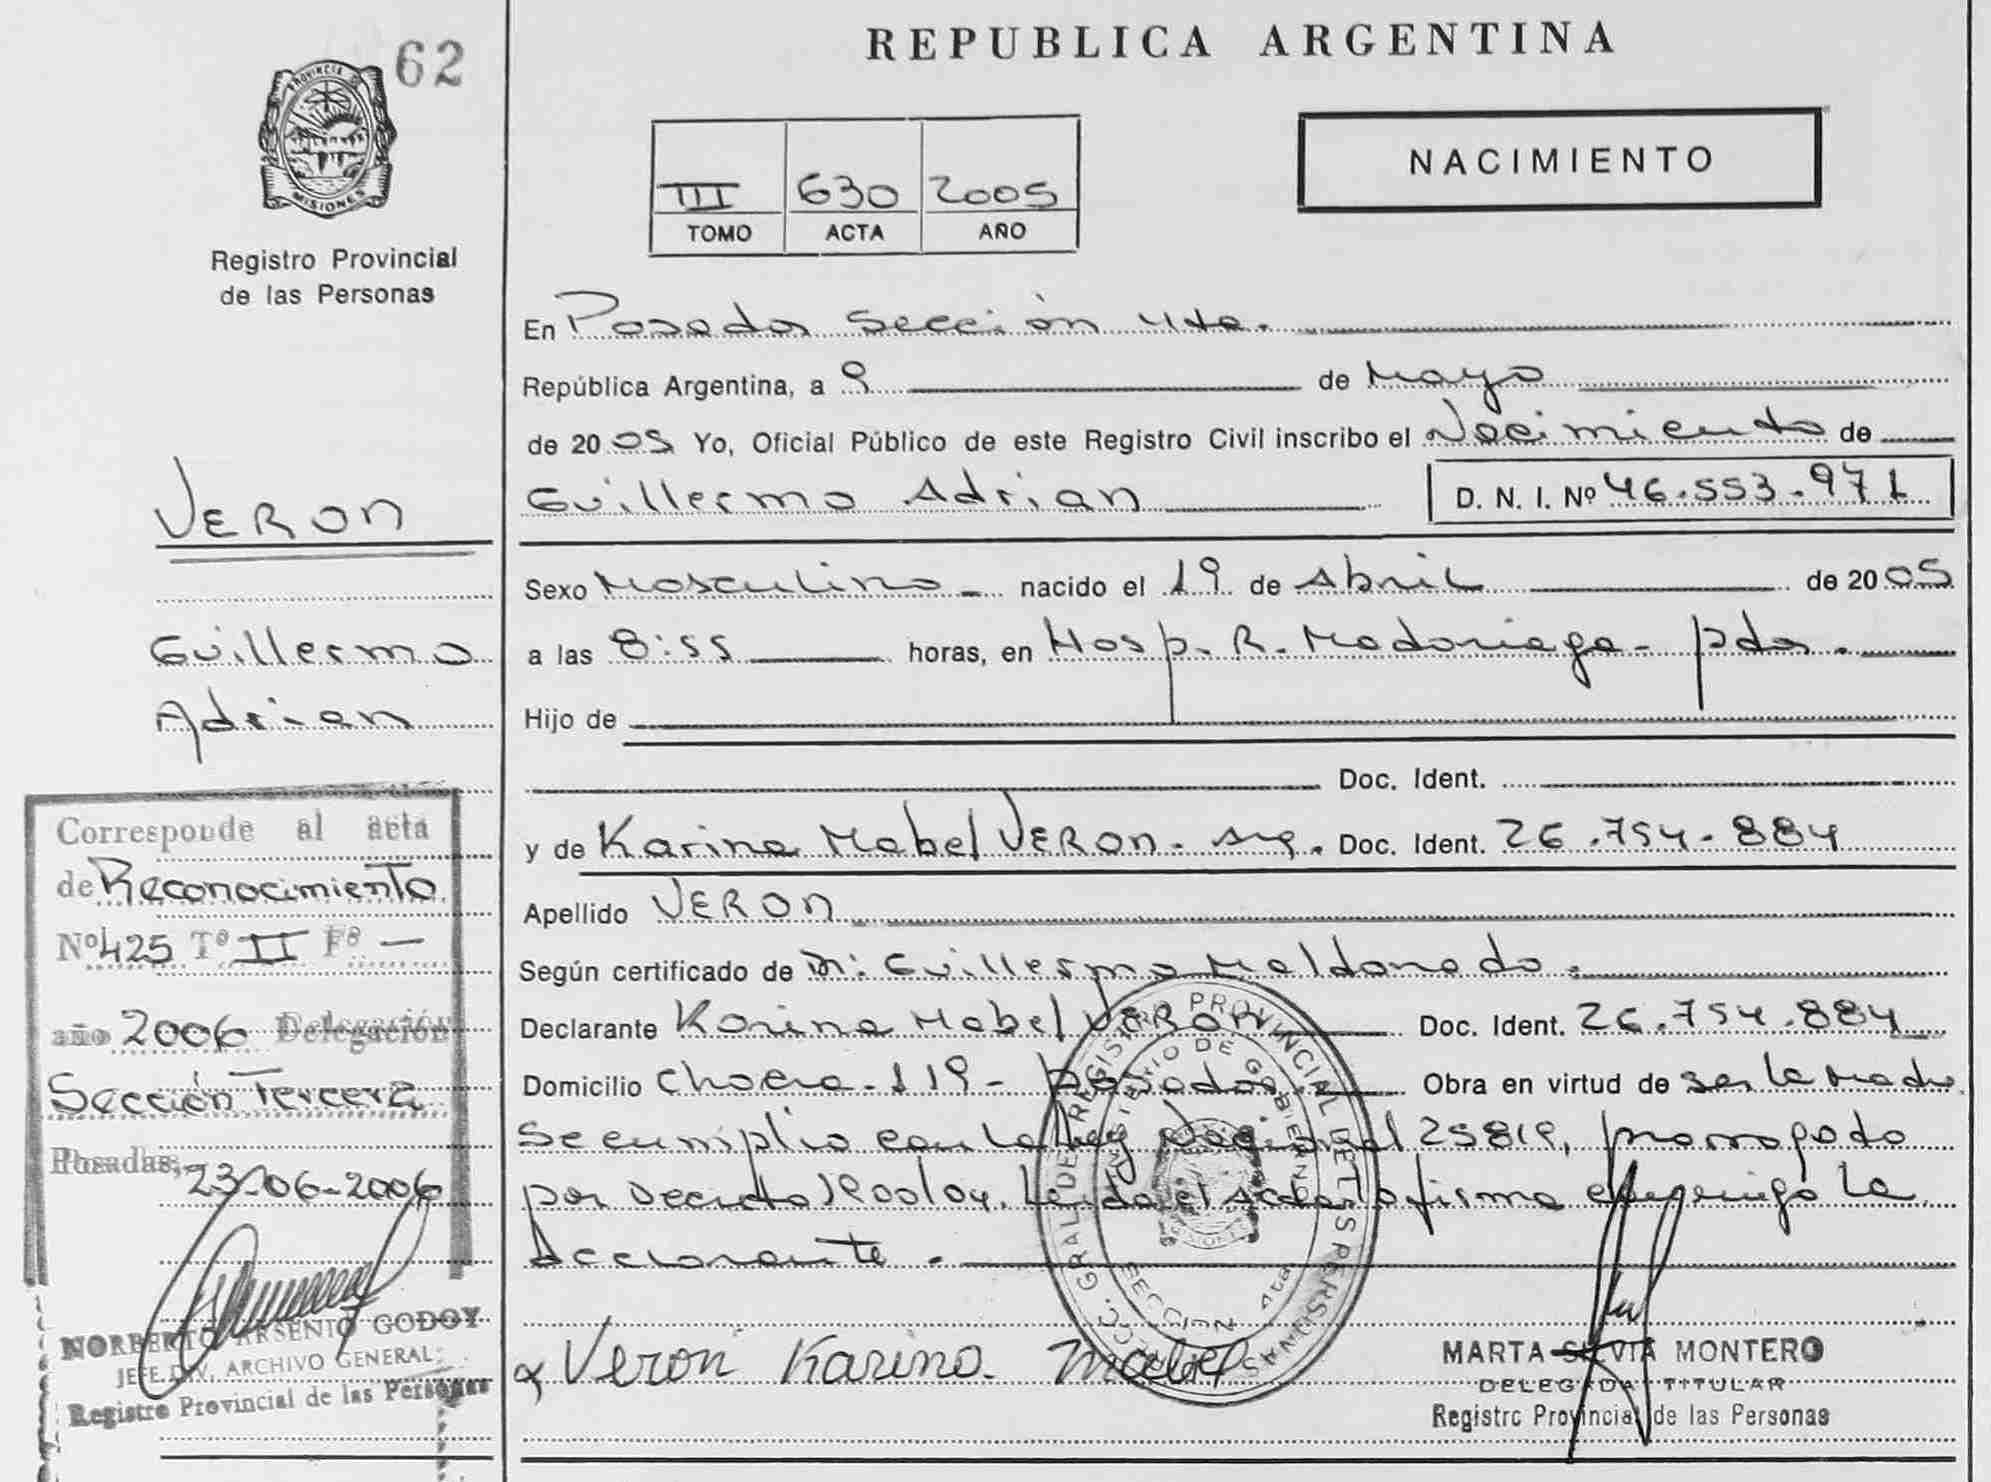 62
PROVINCIA DE
MISIONES
Registro Provincial
de las Personas
VERON
Guillermo
Adrian
Corresponde al acta
de Reconocimiento
Nº 425 Tº II Fº —
año 2006 Delegación
Sección Tercera
Posadas, 23-06-2006
NORBERTO ARSENIO GODOY
JEFE DIV. ARCHIVO GENERAL
Registro Provincial de las Personas
REPUBLICA ARGENTINA
III 630 2005
TOMO ACTA AÑO
NACIMIENTO
En Posadas Sección 4ta.
República Argentina, a 9 de Mayo
de 2005 Yo, Oficial Público de este Registro Civil inscribo el Nacimiento de
Guillermo Adrian D. N. I. Nº 46.553.971
Sexo Masculino nacido el 19 de Abril de 2005
a las 8:55 horas, en Hosp. R. Madariaga - pdas.
Hijo de
Doc. Ident.
y de Karina Mabel VERON - Arg. Doc. Ident. 26.754.884
Apellido VERON
Según certificado de Dr. Guillermo Maldonado.
Declarante Karina Mabel VERON Doc. Ident. 26.754.884
Domicilio Chaera - 119 - Posadas. Obra en virtud de ser la Madre
Se cumplio con la Ley Nacional 25819, prorrogado
por Decreto 1900/04. Leida el Acta la firma conmigo la
declarante.
Veron Karina Mabel
MARTA SILVIA MONTERO
DELEGADA TITULAR
Registro Provincial de las Personas
DIRECC. GRAL. DE REGISTRO PROVINCIAL DE LAS PERSONAS
MINISTERIO DE GOBIERNO
SECCION 4ta